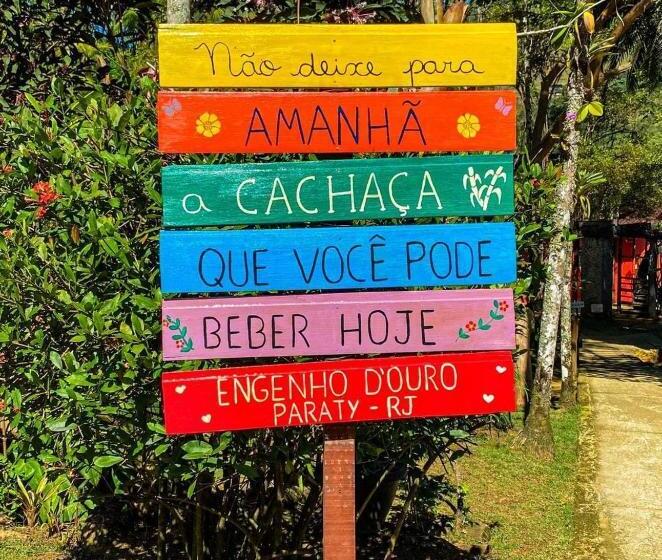 Não deixe para
AMANHÃ
a CACHAÇA
QUE VOCÊ PODE
BEBER HOJE
ENGENHO D'OURO
PARATY - RJ